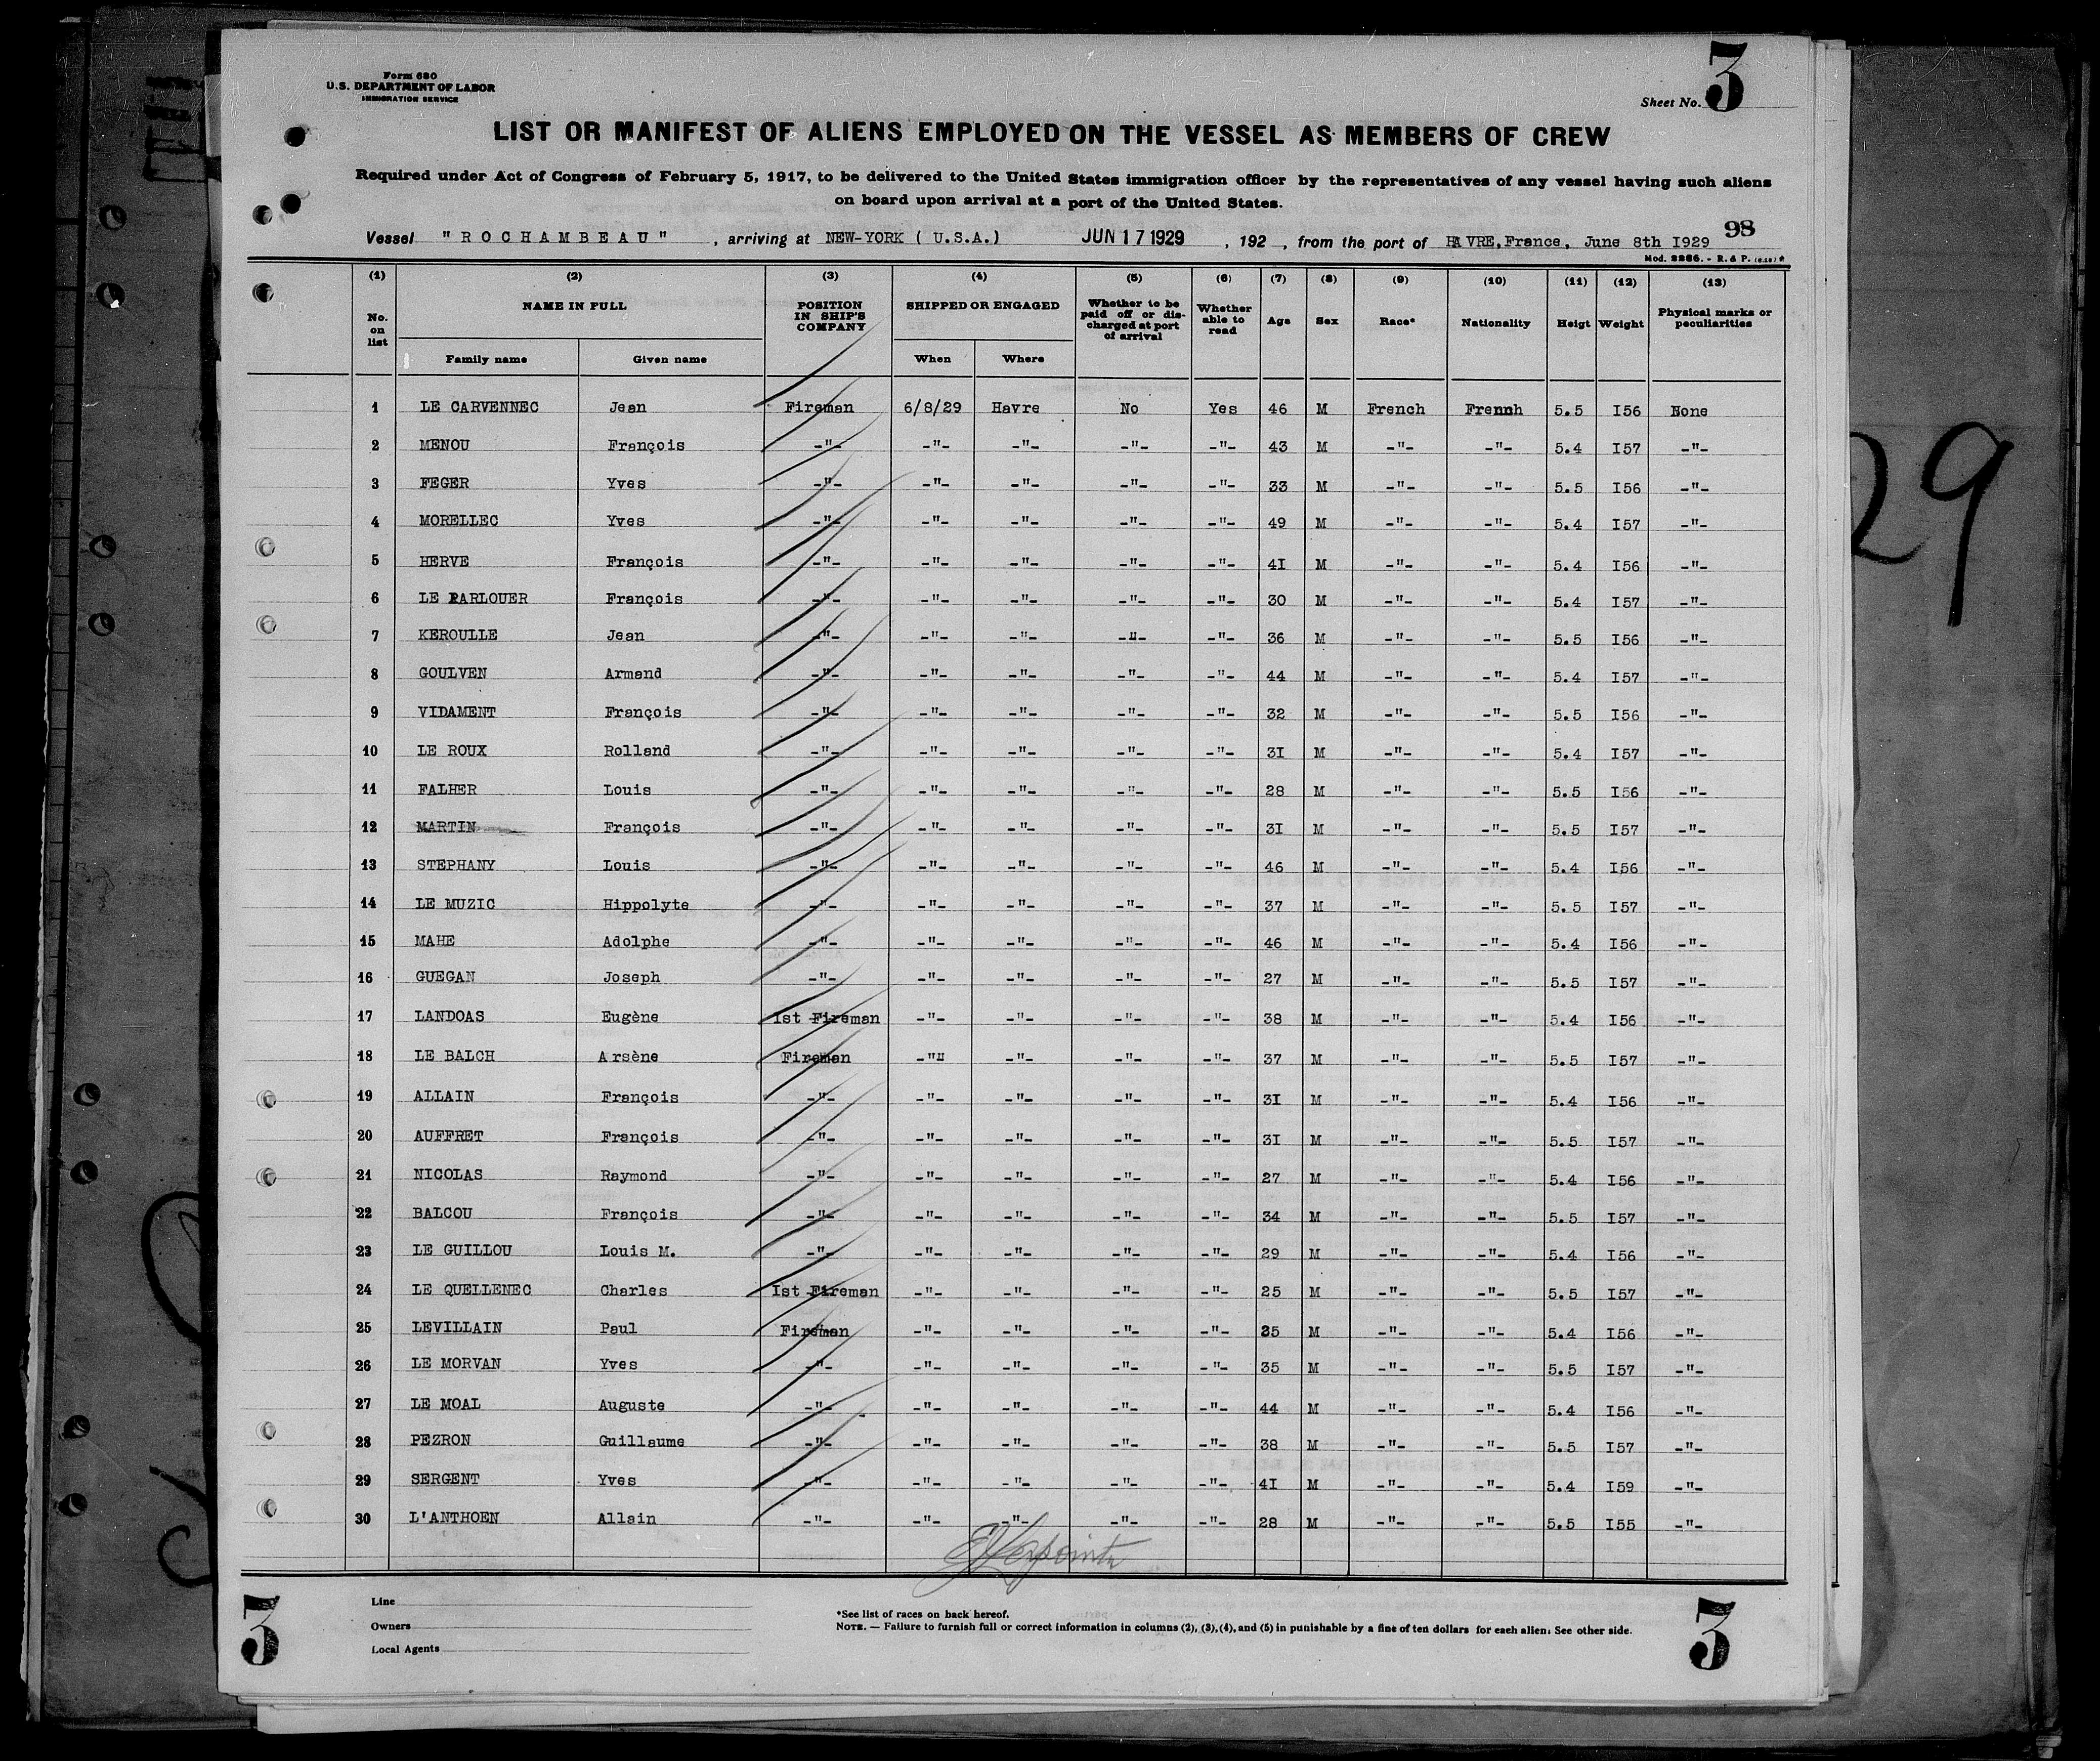 Form 680
U.S. DEPARTMENT OF LABOR
IMMIGRATION SERVICE
Sheet No. 3
LIST OR MANIFEST OF ALIENS EMPLOYED ON THE VESSEL AS MEMBERS OF CREW
Required under Act of Congress of February 5, 1917, to be delivered to the United States immigration officer by the representatives of any vessel having such aliens
on board upon arrival at a port of the United States.
98
Vessel "ROCHAMBEAU", arriving at NEW-YORK ( U.S.A.) JUN 17 1929, 192 , from the port of HAVRE, France, June 8th I929
Mod. 2286. - R. & P. (6.26) *
(1) (2) (3) (4) (5) (6) (7) (8) (9) (10) (11) (12) (13)
No. on list NAME IN FULL POSITION IN SHIP'S COMPANY SHIPPED OR ENGAGED Whether to be paid off or discharged at port of arrival Whether able to read Age Sex Race* Nationality Heigt Weight Physical marks or peculiarities
Family name Given name When Where
1 LE CARVENNEC Jean Fireman 6/8/29 Havre No Yes 46 M French French 5.5 I56 None
2 MENOU François -"- -"- -"- -"- -"- 43 M -"- -"- 5.4 I57 -"-
3 FEGER Yves -"- -"- -"- -"- -"- 33 M -"- -"- 5.5 I56 -"-
4 MORELLEC Yves -"- -"- -"- -"- -"- 49 M -"- -"- 5.4 I57 -"-
5 HERVE François -"- -"- -"- -"- -"- 4I M -"- -"- 5.4 I56 -"-
6 LE PARLOUER François -"- -"- -"- -"- -"- 30 M -"- -"- 5.4 I57 -"-
7 KEROULLE Jean -"- -"- -"- -"- -"- 36 M -"- -"- 5.5 I56 -"-
8 GOULVEN Armand -"- -"- -"- -"- -"- 44 M -"- -"- 5.4 I57 -"-
9 VIDAMENT François -"- -"- -"- -"- -"- 32 M -"- -"- 5.5 I56 -"-
10 LE ROUX Rolland -"- -"- -"- -"- -"- 3I M -"- -"- 5.4 I57 -"-
11 FALHER Louis -"- -"- -"- -"- -"- 28 M -"- -"- 5.5 I56 -"-
12 MARTIN François -"- -"- -"- -"- -"- 3I M -"- -"- 5.5 I57 -"-
13 STEPHANY Louis -"- -"- -"- -"- -"- 46 M -"- -"- 5.4 I56 -"-
14 LE MUZIC Hippolyte -"- -"- -"- -"- -"- 37 M -"- -"- 5.5 I57 -"-
15 MAHE Adolphe -"- -"- -"- -"- -"- 46 M -"- -"- 5.4 I56 -"-
16 GUEGAN Joseph -"- -"- -"- -"- -"- 27 M -"- -"- 5.5 I57 -"-
17 LANDOAS Eugène Ist Fireman -"- -"- -"- -"- 38 M -"- -"- 5.4 I56 -"-
18 LE BALCH Arsène Fireman -"" -"- -"- -"- 37 M -"- -"- 5.5 I57 -"-
19 ALLAIN François -"- -"- -"- -"- -"- 3I M -"- -"- 5.4 I56 -"-
20 AUFFRET François -"- -"- -"- -"- -"- 3I M -"- -"- 5.5 I57 -"-
21 NICOLAS Raymond -"- -"- -"- -"- -"- 27 M -"- -"- 5.4 I56 -"-
22 BALCOU François -"- -"- -"- -"- -"- 34 M -"- -"- 5.5 I57 -"-
23 LE GUILLOU Louis M. -"- -"- -"- -"- -"- 29 M -"- -"- 5.4 I56 -"-
24 LE QUELLENEC Charles Ist Fireman -"- -"- -"- -"- 25 M -"- -"- 5.5 I57 -"-
25 LEVILLAIN Paul Fireman -"- -"- -"- -"- 35 M -"- -"- 5.4 I56 -"-
26 LE MORVAN Yves -"- -"- -"- -"- -"- 35 M -"- -"- 5.5 I57 -"-
27 LE MOAL Auguste -"- -"- -"- -"- -"- 44 M -"- -"- 5.4 I56 -"-
28 PEZRON Guillaume -"- -"- -"- -"- -"- 38 M -"- -"- 5.5 I57 -"-
29 SERGENT Yves -"- -"- -"- -"- -"- 4I M -"- -"- 5.4 I59 -"-
30 L'ANTHOEN Allain -"- -"- -"- -"- -"- 28 M -"- -"- 5.5 I55 -"-
Line
Owners
Local Agents
*See list of races on back hereof.
NOTE. — Failure to furnish full or correct information in columns (2), (3), (4), and (5) in punishable by a fine of ten dollars for each alien. See other side.
3
3
29